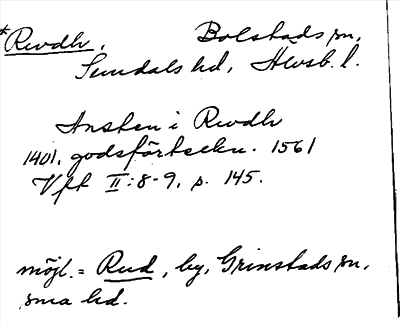 *Rwdh, Bolstads sn,
Sundals hd, Älvsb. l.
Ansten i Rwdh
1401, godsförteckn. 1561
Vft II: 8-9, p. 145.
möjl. = Rud, by, Grinstads sn,
sma hd.